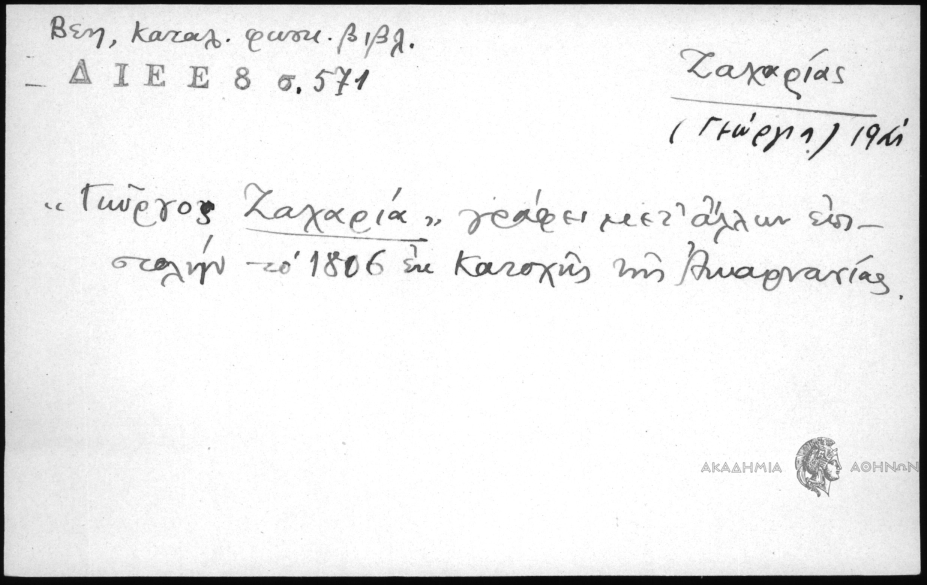 Βεη, Καταλ. φωτ. βιβλ.
_ Δ Ι Ε Ε 8 σ. 571
Ζαχαρίας
(Γεώργιος)
"Γιῶργος Ζαχαρία" γράφει μετ' ἄλλων ἐπι-
στολήν τὸ 1806 ἐκ Κατοχῆς τῆς Ἀκαρνανίας.
ΑΚΑΔΗΜΙΑ ΑΘΗΝΩΝ